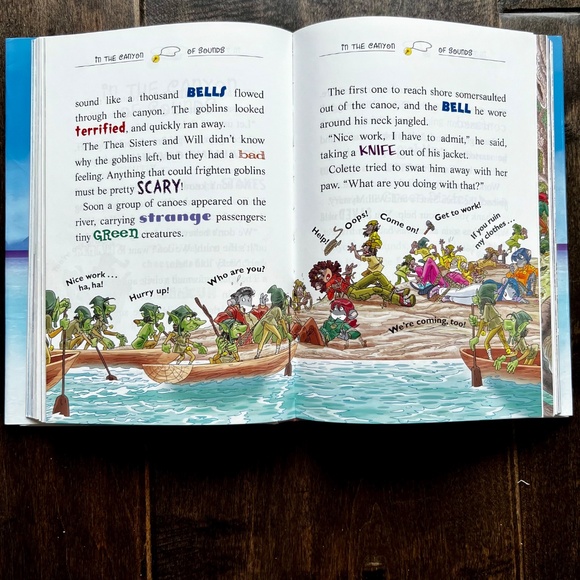 IN THE CANYON OF SOUNDS
sound like a thousand BELLS flowed
through the canyon. The goblins looked
terrified, and quickly ran away.
The Thea Sisters and Will didn't know
why the goblins left, but they had a bad
feeling. Anything that could frighten goblins
must be pretty SCARY!
Soon a group of canoes appeared on the
river, carrying strange passengers:
tiny GREEN creatures.
Nice work . . .
ha, ha!
Hurry up!
Who are you?
IN THE CANYON OF SOUNDS
The first one to reach shore somersaulted
out of the canoe, and the BELL he wore
around his neck jangled.
"Nice work, I have to admit," he said,
taking a KNIFE out of his jacket.
Colette tried to swat him away with her
paw. "What are you doing with that?"
Help!
Oops!
Come on!
Get to work!
If you ruin
my clothes . . .
We're coming, too!